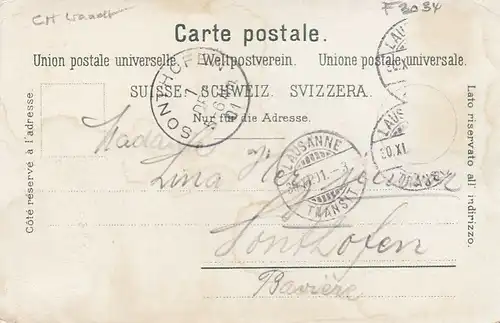 CH Waadt
F 3034
Carte postale.
Union postale universelle. Weltpostverein. Unione postale universale.
SUISSE. SCHWEIZ. SVIZZERA.
Nur für die Adresse.
Côté réservé à l'adresse.
Lato riservato all' indirizzo.
SONTHOFEN
1
DEZ
LAUSANNE
TRANSIT
LAUSANNE
30.XI
Madame
Lina
Sonthofen
Bavière